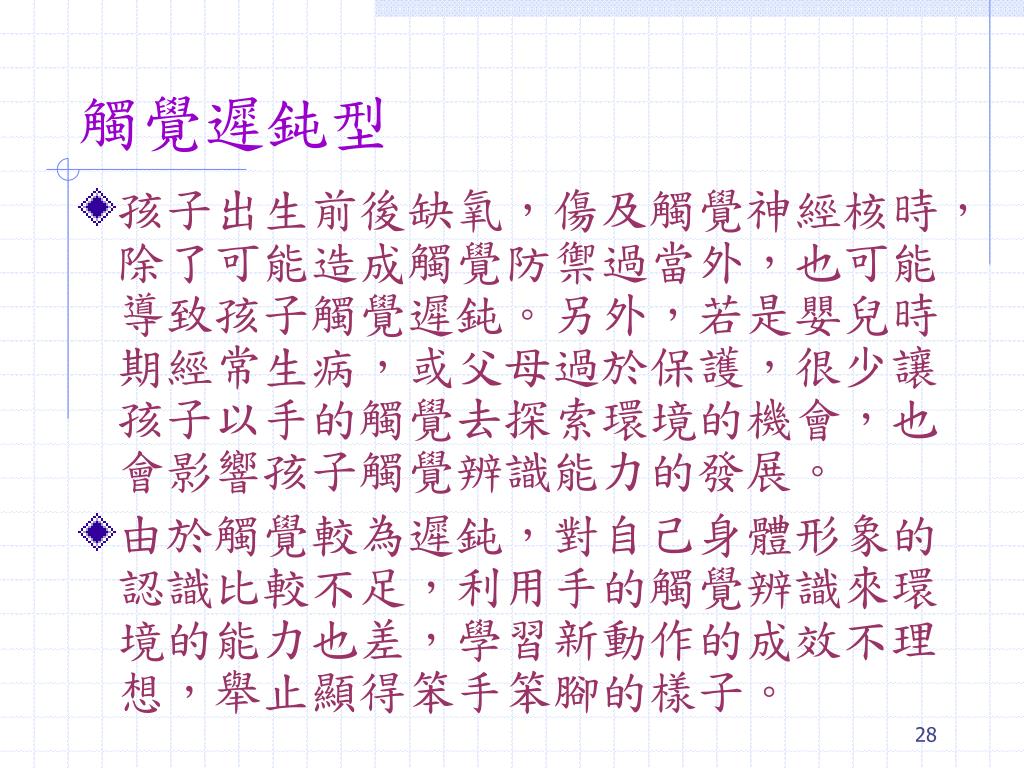 觸覺遲鈍型
孩子出生前後缺氧，傷及觸覺神經核時，
除了可能造成觸覺防禦過當外，也可能
導致孩子觸覺遲鈍。另外，若是嬰兒時
期經常生病，或父母過於保護，很少讓
孩子以手的觸覺去探索環境的機會，也
會影響孩子觸覺辨識能力的發展。
由於觸覺較為遲鈍，對自己身體形象的
認識比較不足，利用手的觸覺辨識來環
境的能力也差，學習新動作的成效不理
想，舉止顯得笨手笨腳的樣子。
28